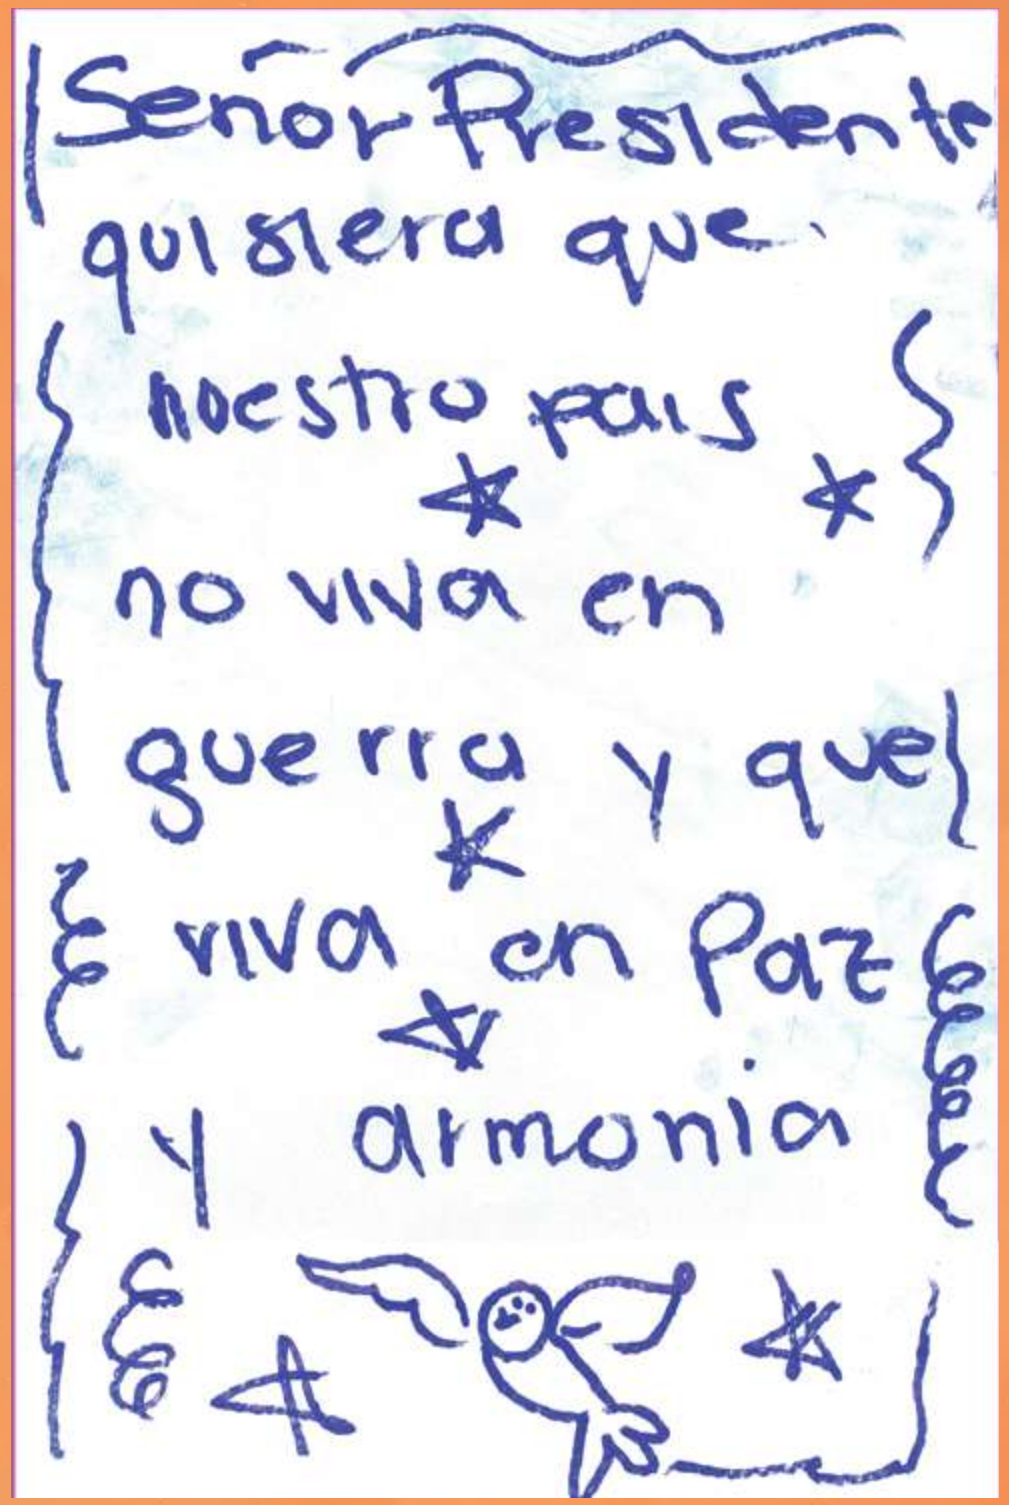 Señor Presidente
quisiera que
nuestro pais
no viva en
guerra y que
viva en Paz
y armonia